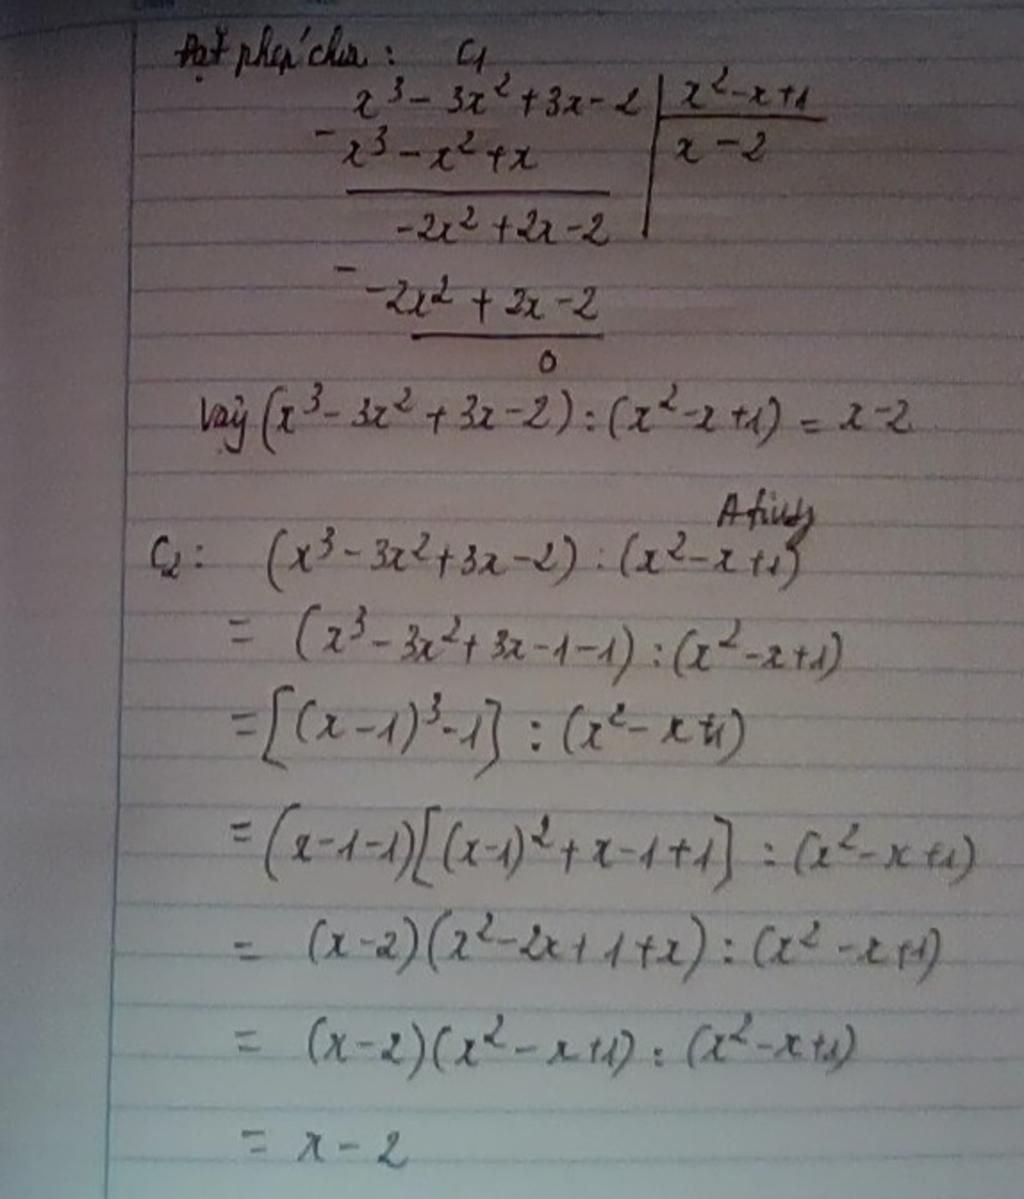 Đặt phép chia: C1
x³ - 3x² + 3x - 2 | x² - x + 1
- x³ - x² + x | x - 2
-2x² + 2x - 2
- -2x² + 2x - 2
0
Vậy (x³ - 3x² + 3x - 2) : (x² - x + 1) = x - 2
C2: (x³ - 3x² + 3x - 2) : (x² - x + 1)
= (x³ - 3x² + 3x - 1 - 1) : (x² - x + 1)
= [(x - 1)³ - 1] : (x² - x + 1)
= (x - 1 - 1)[(x - 1)² + x - 1 + 1] : (x² - x + 1)
= (x - 2)(x² - 2x + 1 + x) : (x² - x + 1)
= (x - 2)(x² - x + 1) : (x² - x + 1)
= x - 2